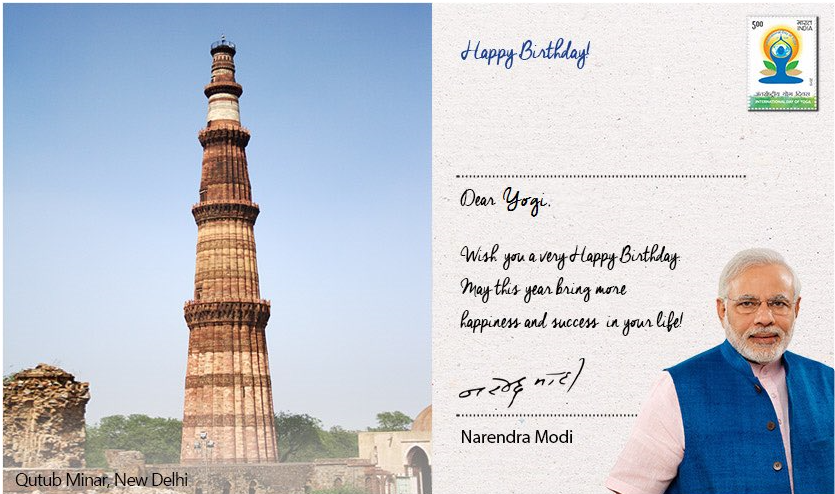 Happy Birthday!
500 भारत
INDIA
अंतर्राष्ट्रीय योग दिवस
INTERNATIONAL DAY OF YOGA
Dear Yogi,
Wish you a very Happy Birthday.
May this year bring more
happiness and success in your life!
नरेन्द्र मोदी
Narendra Modi
Qutub Minar, New Delhi